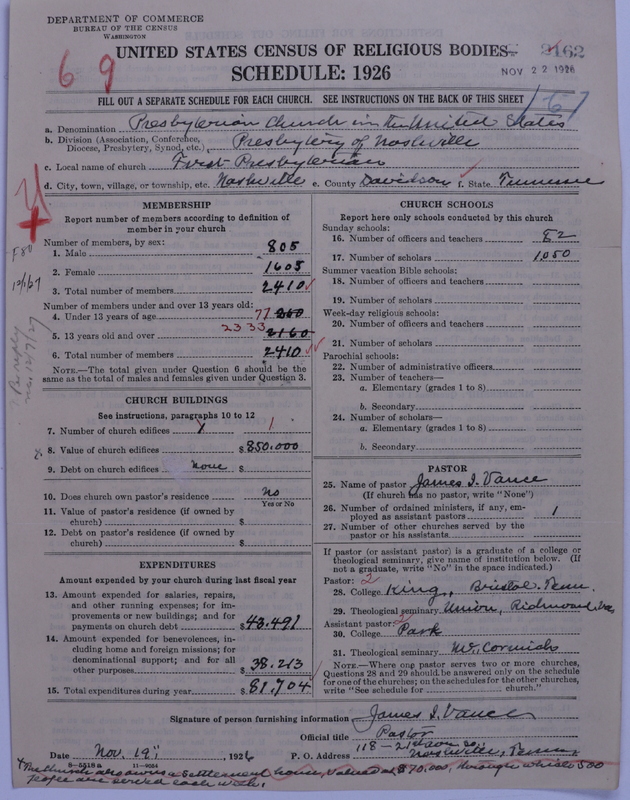 DEPARTMENT OF COMMERCE
BUREAU OF THE CENSUS
WASHINGTON
UNITED STATES CENSUS OF RELIGIOUS BODIES
SCHEDULE: 1926
69
2162
NOV 22 1926
FILL OUT A SEPARATE SCHEDULE FOR EACH CHURCH. SEE INSTRUCTIONS ON THE BACK OF THIS SHEET
a. Denomination Presbyterian Church in the United States
b. Division (Association, Conference, Diocese, Presbytery, Synod, etc.) Presbytery of Nashville
c. Local name of church First Presbyterian
d. City, town, village, or township, etc. Nashville e. County Davidson f. State Tennessee
MEMBERSHIP
Report number of members according to definition of member in your church
Number of members, by sex:
1. Male 805
2. Female 1605
3. Total number of members 2410
Number of members under and over 13 years old:
4. Under 13 years of age 77 250
5. 13 years old and over 2333 2160
6. Total number of members 2410
NOTE.—The total given under Question 6 should be the same as the total of males and females given under Question 3.
CHURCH BUILDINGS
See instructions, paragraphs 10 to 12
7. Number of church edifices 1
8. Value of church edifices $850.000
9. Debt on church edifices none $
10. Does church own pastor's residence No
Yes or No
11. Value of pastor's residence (if owned by church) $
12. Debt on pastor's residence (if owned by church) $
EXPENDITURES
Amount expended by your church during last fiscal year
13. Amount expended for salaries, repairs, and other running expenses; for improvements or new buildings; and for payments on church debt $43.491
14. Amount expended for benevolences, including home and foreign missions; for denominational support; and for all other purposes $38.213
15. Total expenditures during year $81,704
CHURCH SCHOOLS
Report here only schools conducted by this church
Sunday schools:
16. Number of officers and teachers 82
17. Number of scholars 1050
Summer vacation Bible schools:
18. Number of officers and teachers
19. Number of scholars
Week-day religious schools:
20. Number of officers and teachers
21. Number of scholars
Parochial schools:
22. Number of administrative officers
23. Number of teachers—
a. Elementary (grades 1 to 8)
b. Secondary
24. Number of scholars—
a. Elementary (grades 1 to 8)
b. Secondary
PASTOR
25. Name of pastor James I. Vance
(If church has no pastor, write "None")
26. Number of ordained ministers, if any, employed as assistant pastors 1
27. Number of other churches served by the pastor or his assistants
If pastor (or assistant pastor) is a graduate of a college or theological seminary, give name of institution below. (If not a graduate, write "No" in the space indicated.)
Pastor: 2
28. College King, Bristol, Tenn.
29. Theological seminary Union, Richmond, Va.
Assistant pastor: 2
30. College Park
31. Theological seminary McCormick
NOTE.—Where one pastor serves two or more churches, Questions 28 and 29 should be answered only on the schedule for one of the churches; on the schedules for the other churches, write "See schedule for church."
Signature of person furnishing information James I. Vance
Official title Pastor
Date Nov. 19, 1926 P. O. Address 118 - 21st Ave So, Nashville, Tenn.
8-5518a 11-9054
The church also owns a Settlement house, valued at $70,000, through which 500 people are served each week.